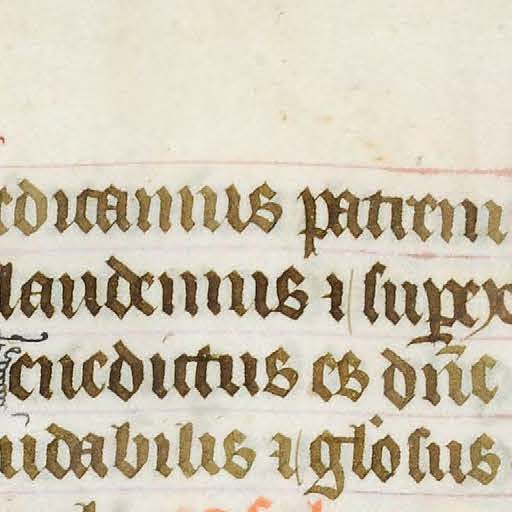 edicamus patrem
laudemus ⁊ sup̱ex
enedictus es dn̄e
udabilis ⁊ gl'osus